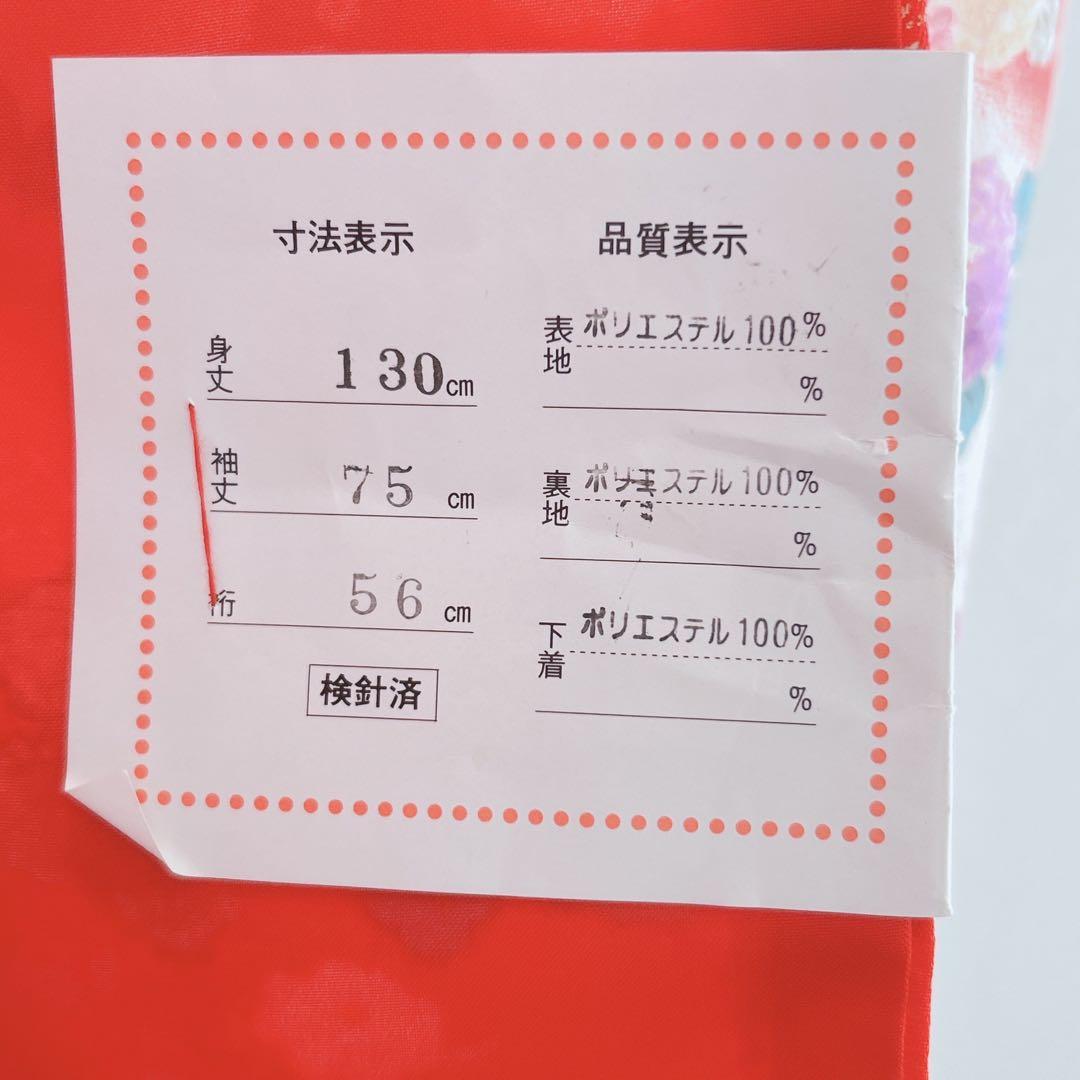 寸法表示
身丈 130cm
袖丈 75cm
裄 56cm
検針済
品質表示
表地 ポリエステル100%
%
裏地 ポリエステル100%
%
下着 ポリエステル100%
%